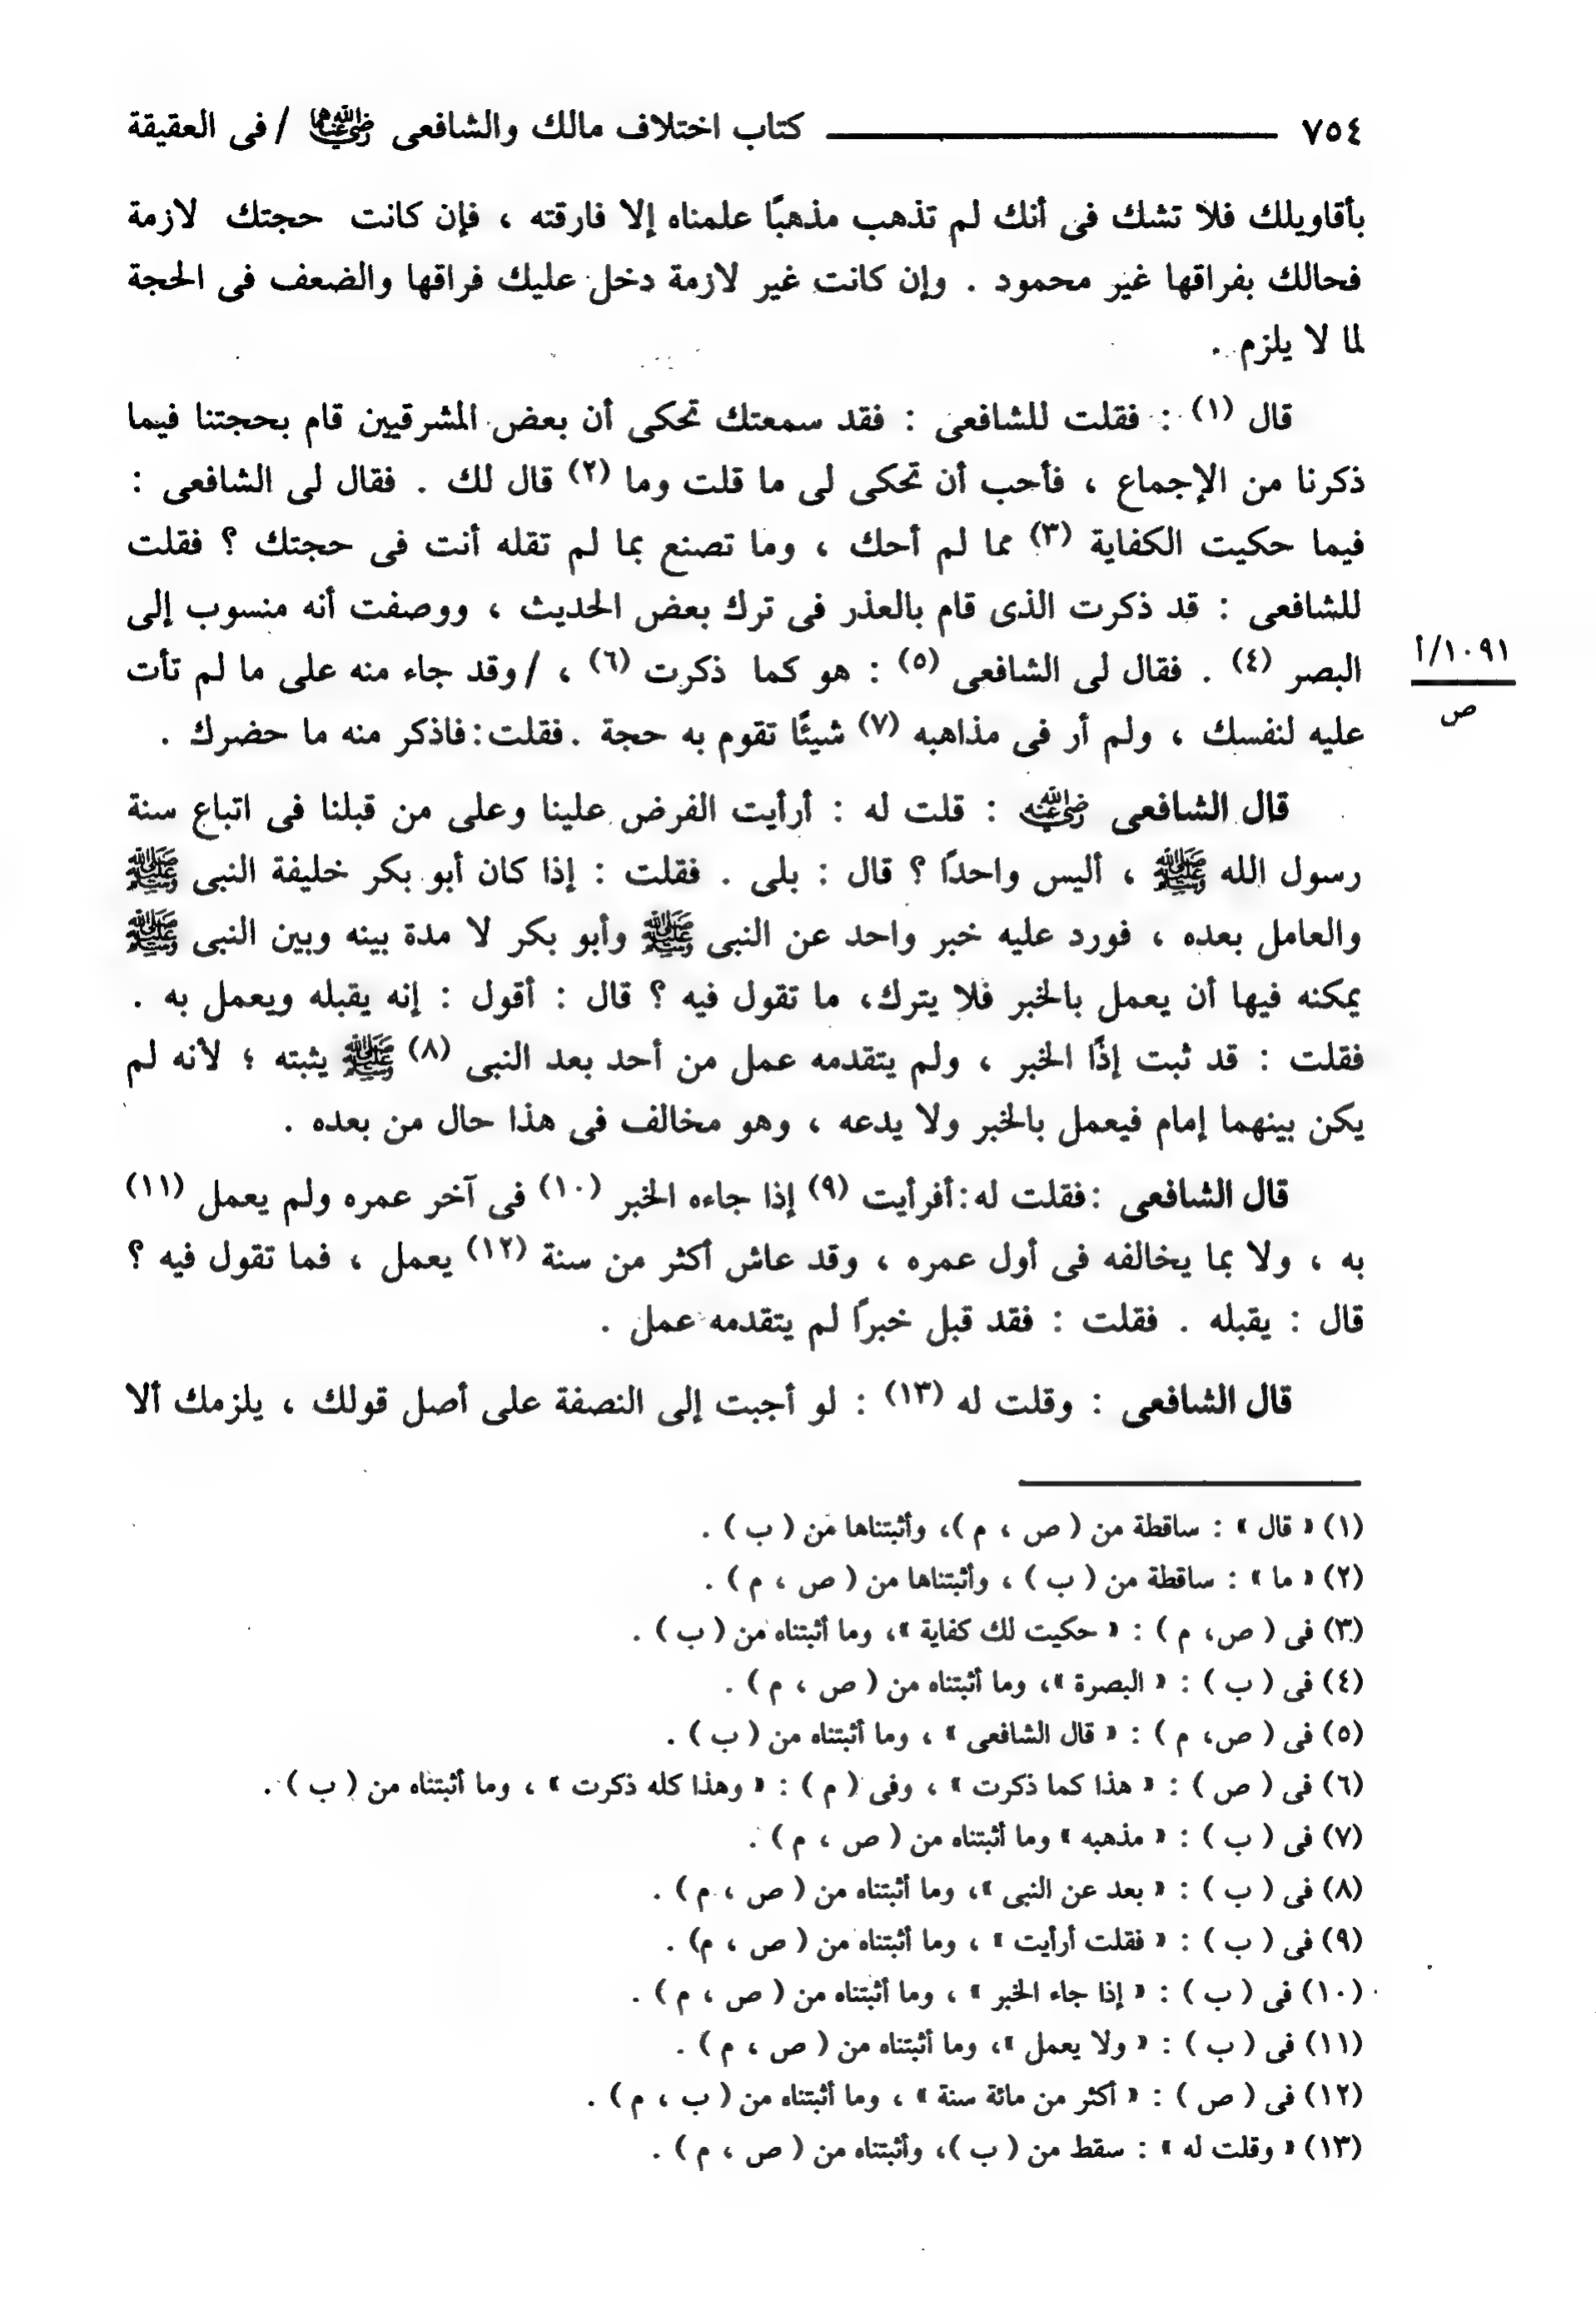 ٧٥٤ ـــــــــ كتاب اختلاف مالك والشافعى رضي الله عنهما / فى العقيقة
بأقاويلك فلا تشك فى أنك لم تذهب مذهبًا علمناه إلا فارقته ، فإن كانت حجتك لازمة
فحالك بفراقها غير محمود . وإن كانت غير لازمة دخل عليك فراقها والضعف فى الحجة
لما لا يلزم .
قال (١) : فقلت للشافعى : فقد سمعتك تحكى أن بعض المشرقيين قام بحجتنا فيما
ذكرنا من الإجماع ، فأحب أن تحكى لى ما قلت وما (٢) قال لك . فقال لى الشافعى :
فيما حكيت الكفاية (٣) مما لم أحك ، وما تصنع بما لم تقله أنت فى حجتك ؟ فقلت
للشافعى : قد ذكرت الذى قام بالعذر فى ترك بعض الحديث ، ووصفت أنه منسوب إلى
البصر (٤) . فقال لى الشافعى (٥) : هو كما ذكرت (٦) ، / وقد جاء منه على ما لم تأت
١٠٩١/أ
ص
عليه لنفسك ، ولم أر فى مذاهبه (٧) شيئًا تقوم به حجة . فقلت : فاذكر منه ما حضرك .
قال الشافعى رضي الله عنه : قلت له : أرأيت الفرض علينا وعلى من قبلنا فى اتباع سنة
رسول الله ﷺ ، أليس واحدًا ؟ قال : بلى . فقلت : إذا كان أبو بكر خليفة النبى ﷺ
والعامل بعده ، فورد عليه خبر واحد عن النبى ﷺ وأبو بكر لا مدة بينه وبين النبى ﷺ
يمكنه فيها أن يعمل بالخبر فلا يترك، ما تقول فيه ؟ قال : أقول : إنه يقبله ويعمل به .
فقلت : قد ثبت إذًا الخبر ، ولم يتقدمه عمل من أحد بعد النبى (٨) ﷺ يثبته ؛ لأنه لم
يكن بينهما إمام فيعمل بالخبر ولا يدعه ، وهو مخالف فى هذا حال من بعده .
قال الشافعى : فقلت له : أفرأيت (٩) إذا جاءه الخبر (١٠) فى آخر عمره ولم يعمل (١١)
به ، ولا بما يخالفه فى أول عمره ، وقد عاش أكثر من سنة (١٢) يعمل ، فما تقول فيه ؟
قال : يقبله . فقلت : فقد قبل خبرًا لم يتقدمه عمل .
قال الشافعى : وقلت له (١٣) : لو أجبت إلى النصفة على أصل قولك ، يلزمك ألا
(١) « قال » : ساقطة من ( ص ، م )، وأثبتناها من ( ب ) .
(٢) « ما » : ساقطة من ( ب ) ، وأثبتناها من ( ص ، م ) .
(٣) فى ( ص، م ) : « حكيت لك كفاية »، وما أثبتناه من ( ب ) .
(٤) فى ( ب ) : « البصرة »، وما أثبتناه من ( ص ، م ) .
(٥) فى ( ص، م ) : « قال الشافعى » ، وما أثبتناه من ( ب ) .
(٦) فى ( ص ) : « هذا كما ذكرت » ، وفى ( م ) : « وهذا كله ذكرت » ، وما أثبتناه من ( ب ) .
(٧) فى ( ب ) : « مذهبه » وما أثبتناه من ( ص ، م ) .
(٨) فى ( ب ) : « بعد عن النبى »، وما أثبتناه من ( ص ، م ) .
(٩) فى ( ب ) : « فقلت أرأيت » ، وما أثبتناه من ( ص ، م) .
(١٠) فى ( ب ) : « إذا جاء الخبر » ، وما أثبتناه من ( ص ، م ) .
(١١) فى ( ب ) : « ولا يعمل »، وما أثبتناه من ( ص ، م ) .
(١٢) فى ( ص ) : « أكثر من مائة سنة » ، وما أثبتناه من ( ب ، م ) .
(١٣) « وقلت له » : سقط من ( ب )، وأثبتناه من ( ص ، م ) .